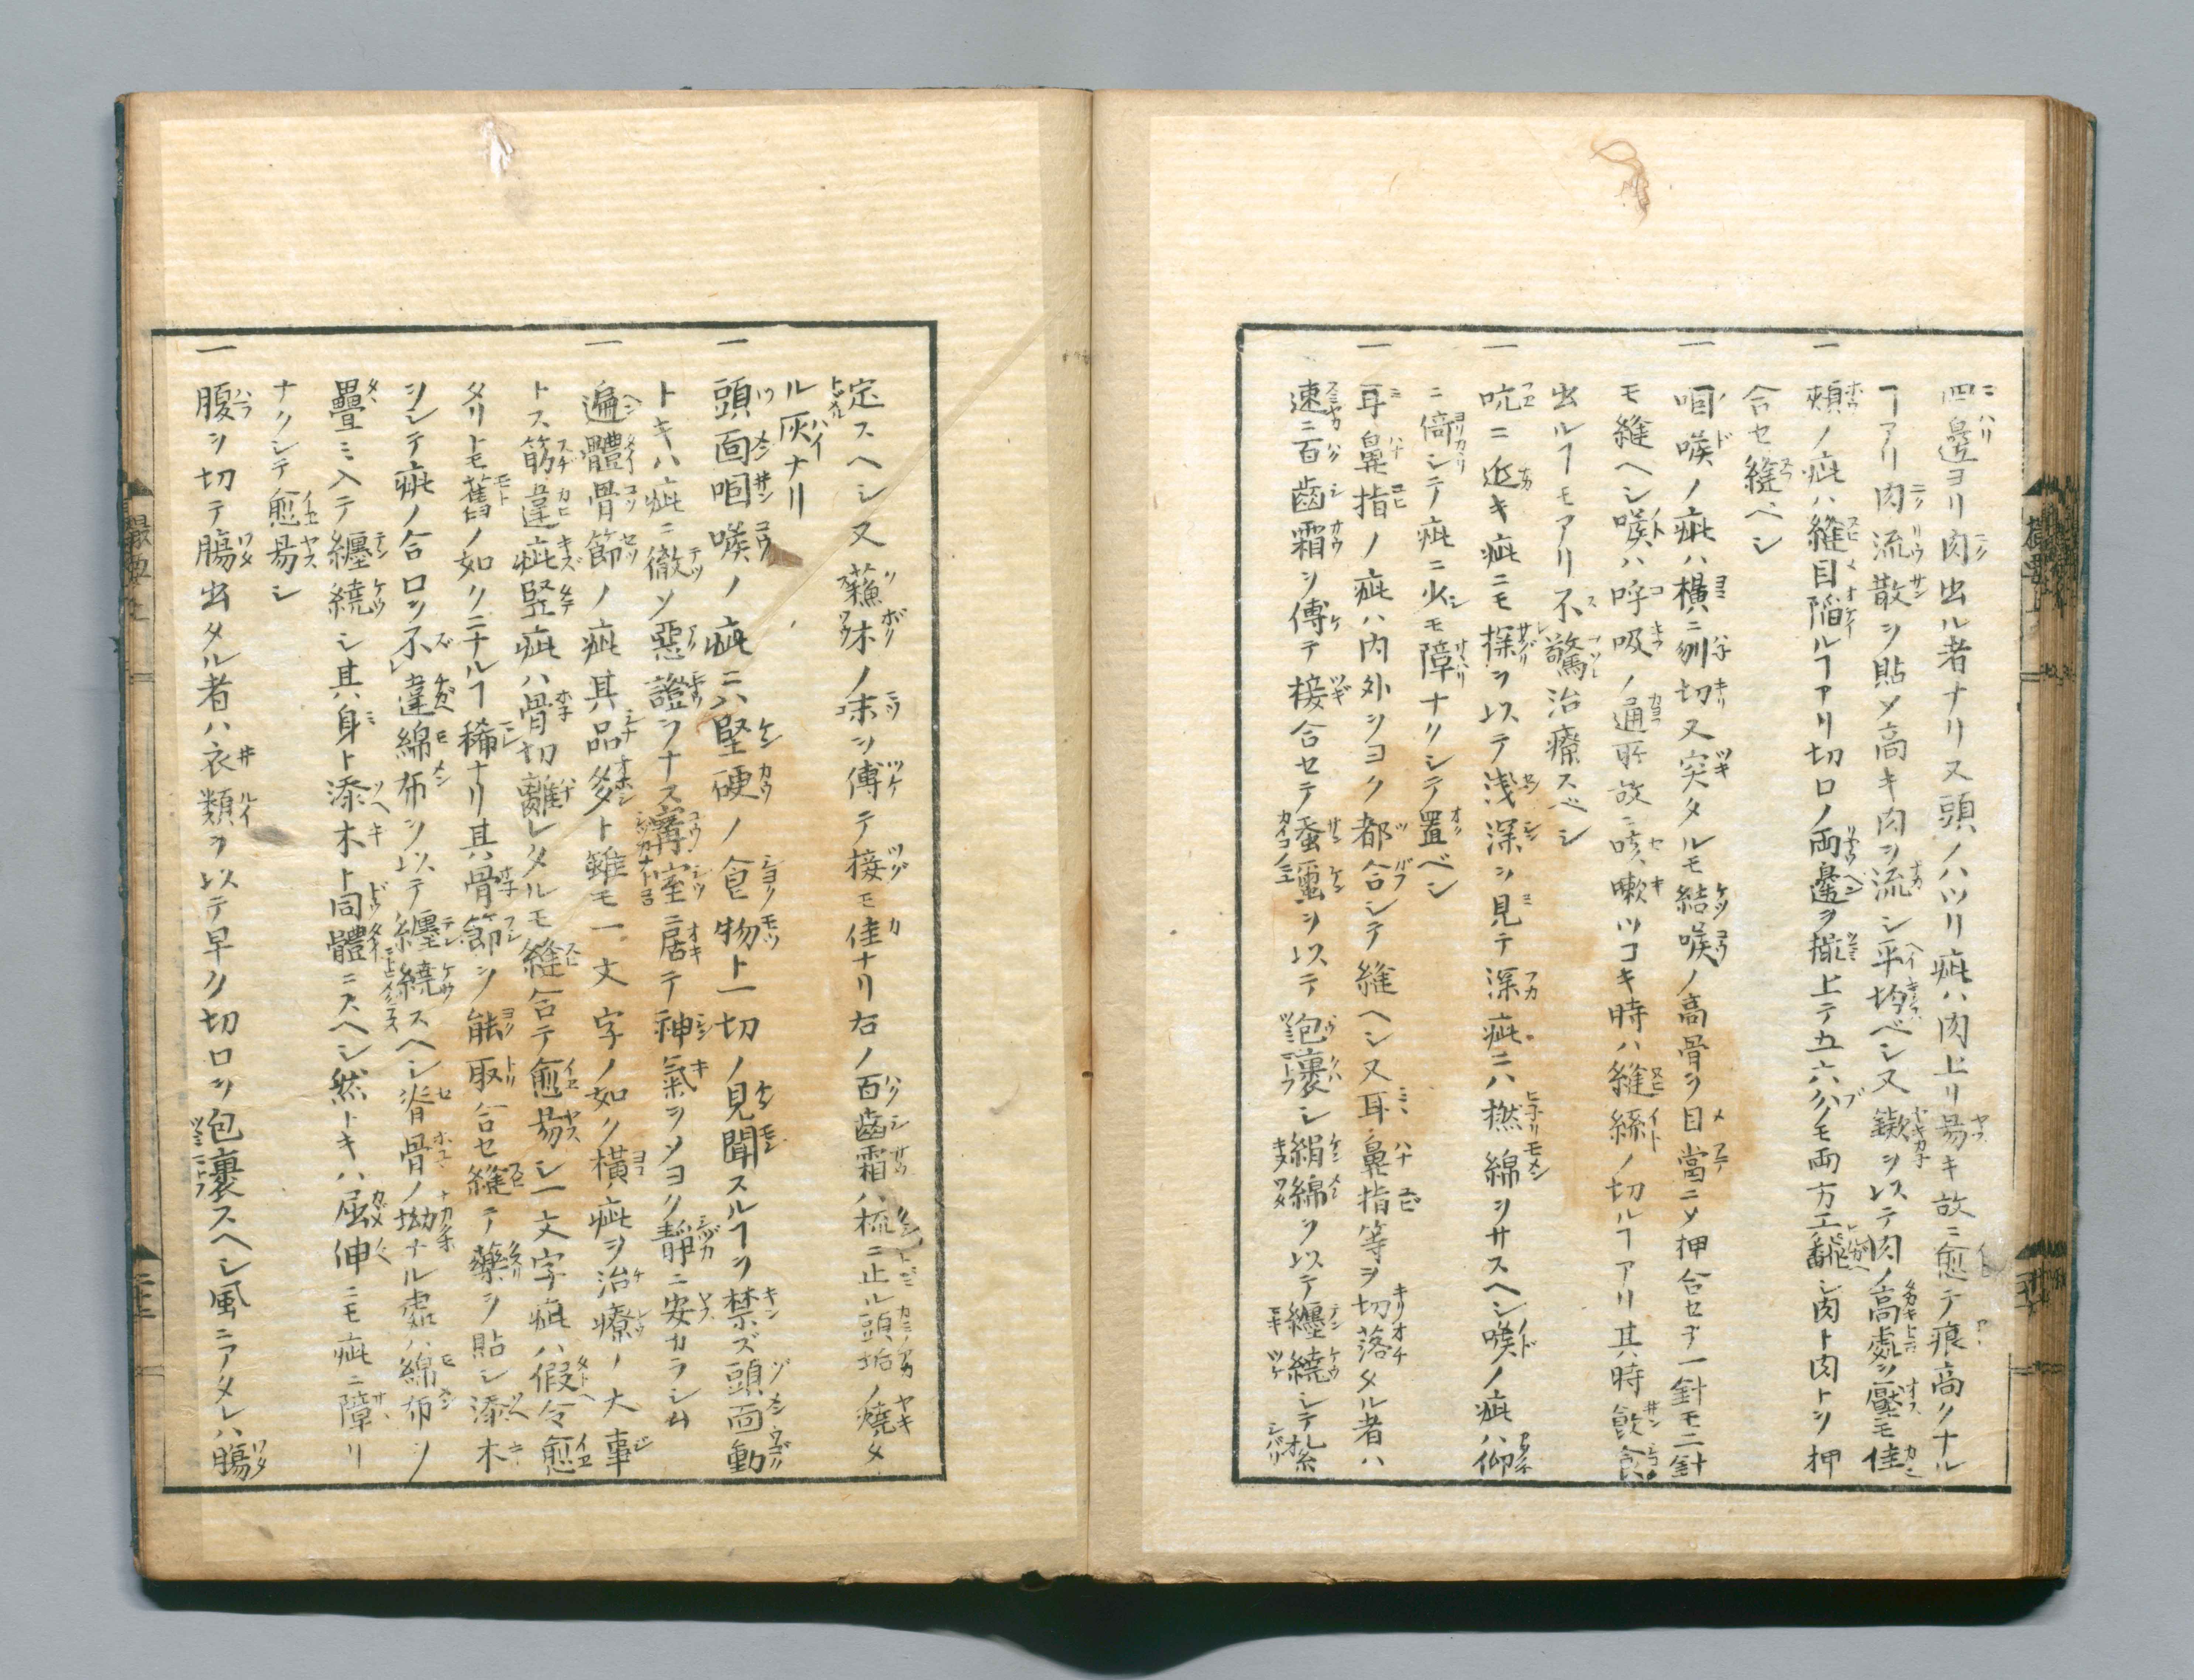 四邊ヨリ肉出ル者ナリ又頭ノハツリ疵ハ肉上リ易キ故ニ愈テ痕高クナル
ヿアリ肉流散ヲ貼メ高キ肉ヲ流シ平均ベシ又鏾ヲ以テ肉ノ高處ヲ壓モ佳
一頰ノ疵ハ縫目陷ルヿアリ切口ノ両邊ヲ撮上テ五六分モ両方エ飜シ肉ト肉トヲ押
合セ縫ベシ
一咽喉ノ疵ハ横ニ刎切又突タルモ結喉ノ高骨ヲ目當ニメ押合セテ一針モ二針
モ縫ヘシ喉ハ呼吸ノ通所故ニ咳嗽ツヨキ時ハ縫絲ノ切ルヿアリ其時飲食
出ルヿモアリ不驚治療スベシ
一吭ニ近キ疵ニモ探ヲ以テ浅深ヲ見テ深疵ニハ撚綿ヲサスヘシ喉ノ疵ハ仰
ニ倚シテ疵ニ少モ障ナクシテ置ベシ
一耳鼻指ノ疵ハ内外ヲヨク都合シテ縫ヘシ又耳鼻指等ヲ切落タル者ハ
速ニ百齒霜ヲ傅テ接合セテ蚕蠒ヲ以テ包裹シ絹綿ヲ以テ纒繞シテ糸
定スヘシ又蘓木ノ末ヲ傅テ接モ佳ナリ右ノ百齒霜ハ梳ニ止ル頭垢ノ燒タ
ル灰ナリ
一頭面咽喉ノ疵ニハ堅硬ノ食物ト一切ノ見聞スルヿヲ禁ズ頭面動
トキハ疵ニ徹ソ惡證ヲナス窨室ニ居テ神氣ヲソヨク靜ニ安カラシム
一遍體骨節ノ疵其品多ト雖モ一文字ノ如ク横疵ヲ治療ノ大事
トス筋違疵竪疵ハ骨切離レタルモ縫合テ愈易シ一文字疵ハ假令愈
タリトモ舊ノ如クニナルヿ稀ナリ其骨節ヲ能取合セ縫テ藥ヲ貼シ添木
ヲシテ疵ノ合口ヲ不違綿布ヲ以テ纒繞スヘシ脊骨ノ坳ナル處ハ綿布ヲ
疊ミ入テ纒繞シ其身ト添木ト同體ニスヘシ然トキハ屈伸ニモ疵ニ障リ
ナクシテ愈易シ
一腹ヲ切テ膓出タル者ハ衣類ヲ以テ早ク切口ヲ包裹スヘシ風ニアタレハ膓